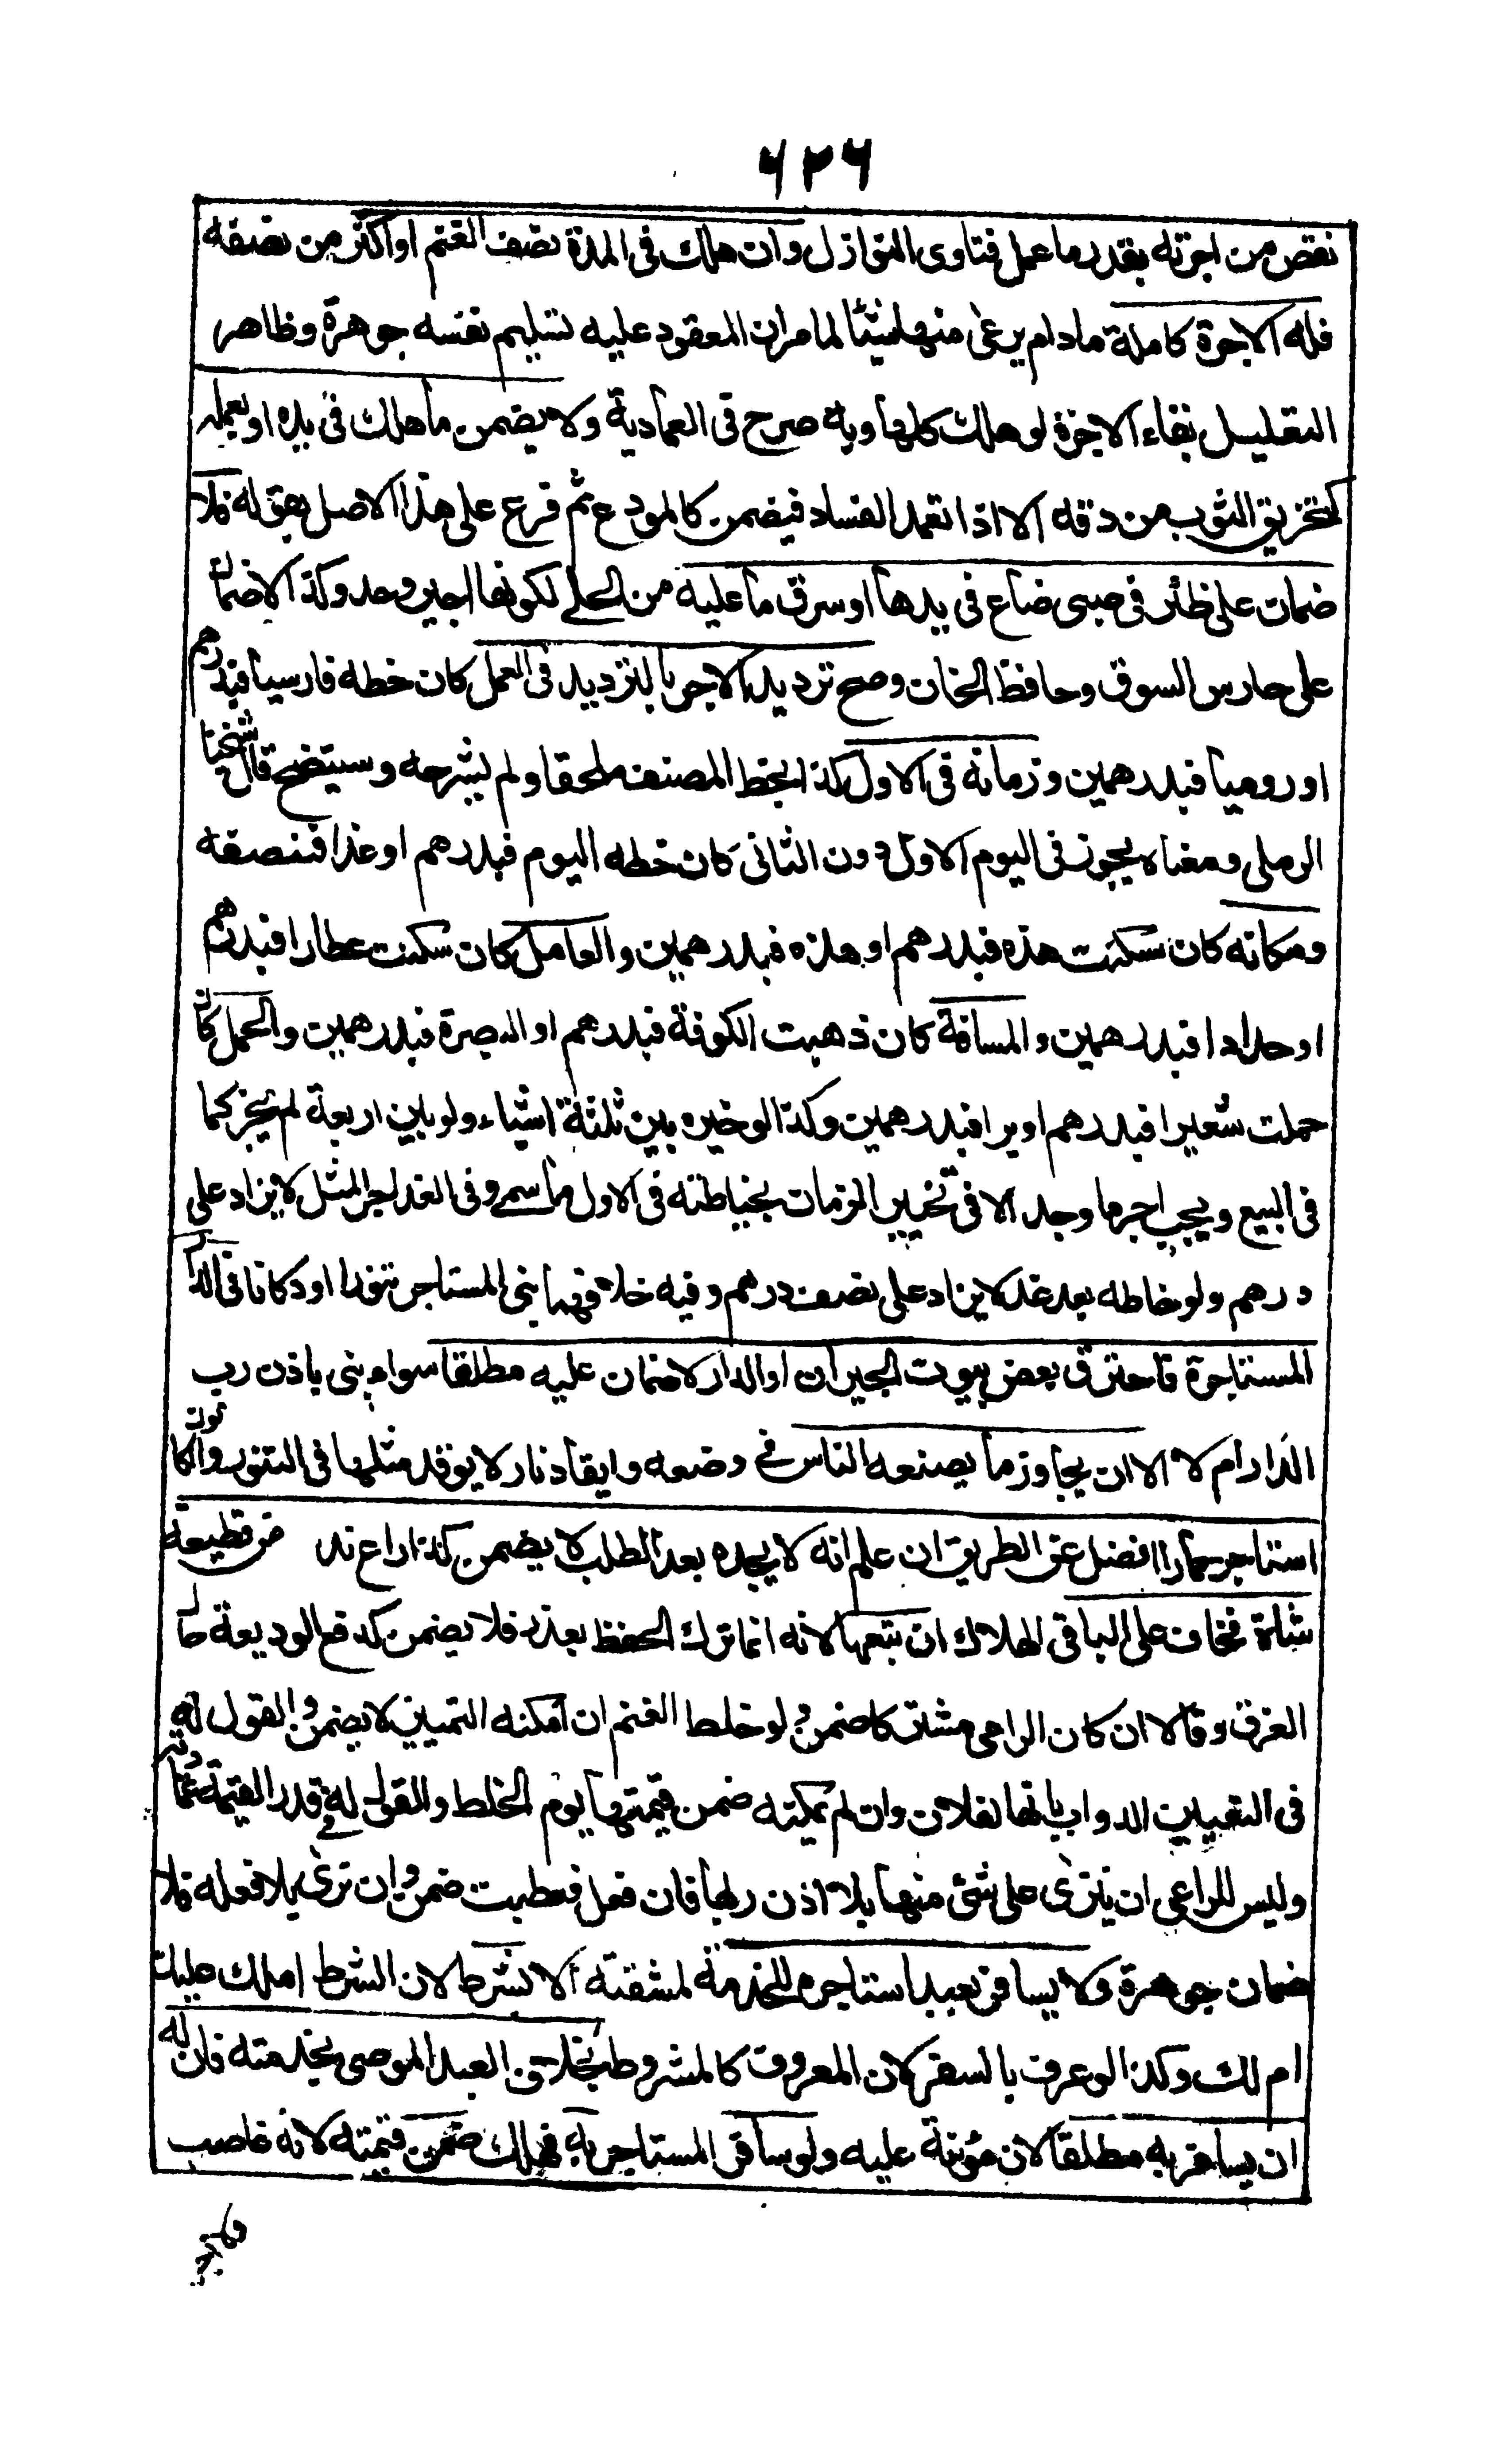 ٦٣٦
نقص من اجرته بقدر ما عمل فتاوى النوازل وان هلك فى المدة نصف الغنم او اكثر من نصفه
فله الاجرة كاملة مادام يرعى منها شيئا لما مر ان المعقود عليه تسليم نفسه جوهرة وظاهر
التعليل بقاء الاجرة لو هلك كلها وبه صرح فى العمادية ولا يضمن ما هلك فى يده او بعمله
كتخريق الثوب من دقه الا اذا تعمد الفساد فيضمن كالمودع ثم فرع على هذا الاصل بقوله فلا
ضمان على ظئر فى صبى ضاع فى يدها او سرق ما عليه من الحلى لكونها اجير وحد وكذا لا ضمان
على حارس السوق وحافظ الخان وصح ترديد الاجر بالترديد فى العمل كان خطه فارسيا فبدرهم
او روميا فبدرهمين وزمانه فى الاول كذا بخط المصنف ملحقا ولم يشرحه وسيتضح قال شيخنا
الرملى ومعناه يجوز فى اليوم الاول دون الثانى كان خطه اليوم فبدرهم او غدا فنصفه
ومكانه كان سكنت هذه فبدرهم او هذه فبدرهمين والعامل كان سكنت عطارا فبدرهم
او حدادا فبدرهمين والمسافة كان ذهبت الكوفة فبدرهم او البصرة فبدرهمين والحمل كان
حملت شعيرا فبدرهم او برا فبدرهمين وكذا لو خيره بين ثلثة اشياء ولو بين اربعة لم يجز كما
فى البيع ويجب اجر ما وجد الا فى تخيير الزمان بخياطته فى الاول ما سمى وفى الغد اجر المثل لا يزاد على
درهم ولو خاطه بعد غد لا يزاد على نصف درهم وفيه خلافهما بنى المستاجر تنورا او دكانا فى الدار
المستاجرة فاحترق بعض بيوت الجيران او الدار لا ضمان عليه مطلقا سواء بنى باذن رب
الدار ام لا الا ان يجاوز ما يصنعه الناس فى وضعه وايقاد نار لا يوقد مثلها فى التنور والكانون
استاجر حمارا فضل عن الطريق ان علم انه لا يجده بعد الطلب لا يضمن كذا راع ند من قطيعه
شاة فخاف على الباقى الهلاك ان تبعها لانه انما ترك الحفظ بعذر فلا يضمن كدفع الوديعة حال
الغرق وقالا ان كان الراعى مشتركا ضمن ولو خلط الغنم ان امكنه التمييز لا يضمن والقول له
فى التعيين الدواب بانها لفلان وان لم يمكنه ضمن قيمتها يوم الخلط والقول له فى قدر القيمة عمادية
وليس للراعى ان ينزى على شئ منها بلا اذن ربها فان فعل فعطبت ضمن وان نزى بلا فعله فلا
ضمان جوهرة ولا يسافر بعبد استاجره للخدمة لمشقته الا بشرط لان الشرط املك عليك
ام لك وكذا لو عرف بالسفر لان المعروف كالمشروط بخلاف العبد الموصى بخدمته فان له
ان يسافر به مطلقا لان مؤنته عليه ولو سافر المستاجر به فهلك ضمن قيمته لانه غاصب